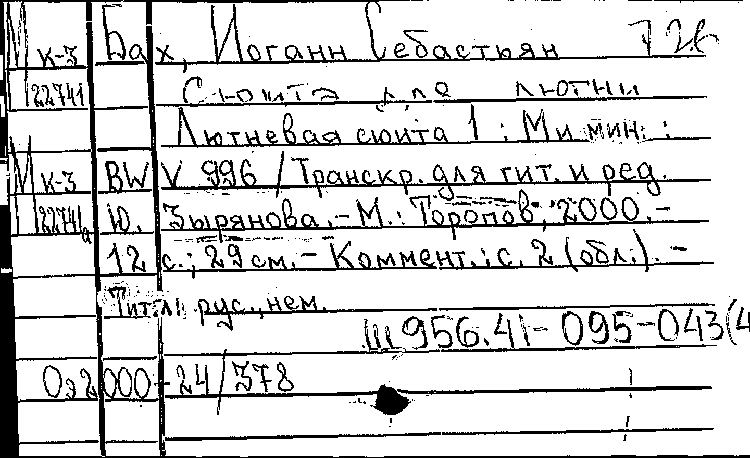 М к-3 Бах, Иоганн Себастьян 726
22741 Сюита для лютни
Лютневая сюита 1 : Ми мин. :
М к-3 BWV 996 / Транскр. для гит. и ред.
22741а Ю. Зырянова. - М. : Торопов, 2000. -
12 с. ; 29 см. - Коммент.: с. 2 (обл.). -
Тит. л. рус., нем.
Ш 956.41-095-043(4
Оэ2000-24/378